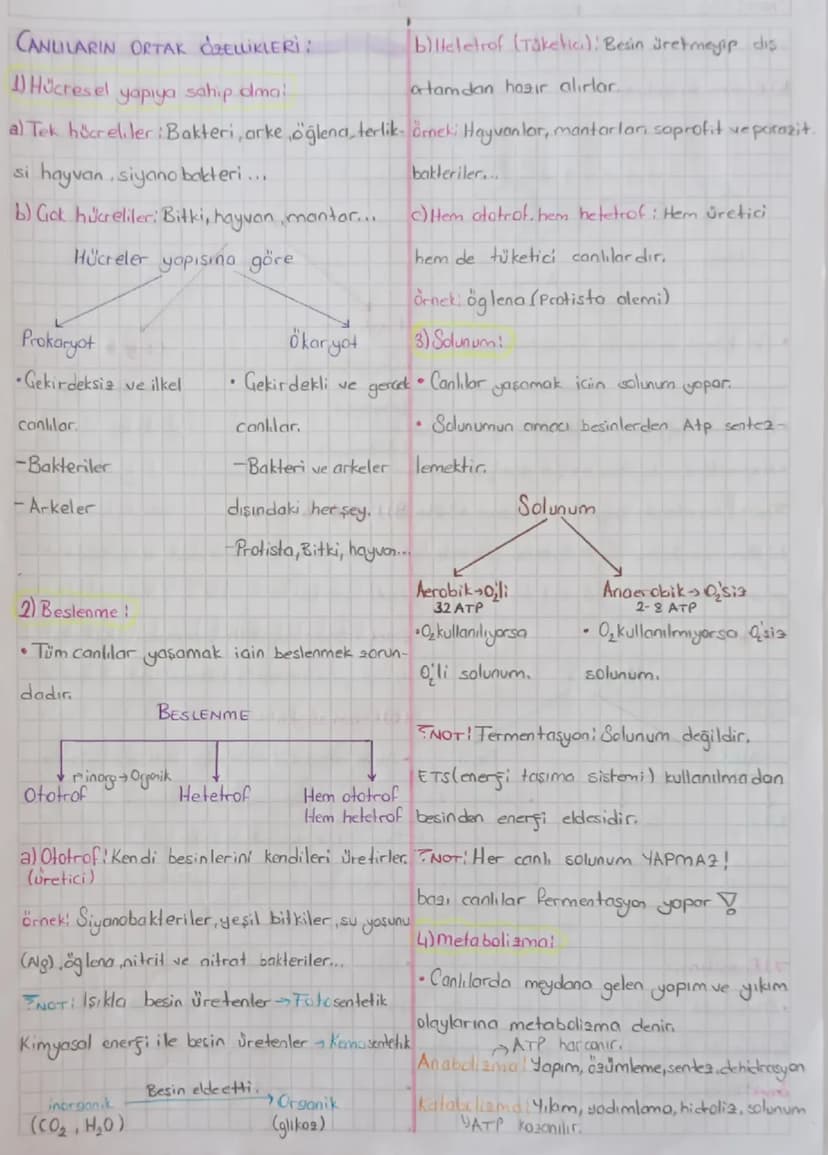 CANLILARIN ORTAK ÖZELLİKLERİ:
1) Hücresel yapıya sahip olma:
a) Tek hücreliler: Bakteri, arke, öğlena, terlik-
si hayvan, siyanobakteri...
b) Çok hücreliler: Bitki, hayvan, mantar...
Hücreler yapısına göre
Prokaryot
Ökaryot
• Çekirdeksiz ve ilkel
canlılar.
- Bakteriler
- Arkeler
• Çekirdekli ve gerçek
canlılar.
- Bakteri ve arkeler
dışındaki herşey.
- Protista, Bitki, hayvan...
2) Beslenme:
• Tüm canlılar yaşamak için beslenmek zorun-
dadır.
BESLENME
inorg → Organik
Ototrof
Hetetrof
Hem ototrof
Hem hetetrof
a) Ototrof: Kendi besinlerini kendileri üretirler.
(üretici)
örnek: Siyanobakteriler, yeşil bitkiler, su yosunu
(Alg), öglena, nitrit ve nitrat bakteriler...
NOT: Işıkla besin üretenler → Fotosentetik
Kimyasal enerji ile besin üretenler → Kemosentetik
Besin elde etti.
inorganik → Organik
(CO2, H2O) (glikoz)
b) Hetetrof (Tüketici): Besin üretmeyip dış
ortamdan hazır alırlar.
örnek: Hayvanlar, mantarlar, saprofit ve parazit
bakteriler...
c) Hem ototrof, hem hetetrof: Hem üretici
hem de tüketici canlılardır.
örnek: öglena (Protista alemi)
3) Solunum:
• Canlılar yaşamak için solunum yapar.
• Solunumun amacı besinlerden Atp sentez-
lemektir.
Solunum
Aerobik → O2'li
32 ATP
• O2 kullanılıyorsa
O2'li solunum.
Anaerobik → O2'siz
2-8 ATP
• O2 kullanılmıyorsa O2'siz
solunum.
NOT: Fermentasyon: Solunum değildir.
ETS (enerji taşıma sistemi) kullanılmadan
besinden enerji eldesidir.
NOT: Her canlı solunum YAPMAZ!
bazı canlılar fermentasyon yapar !
4) metabolizma:
• Canlılarda meydana gelen yapım ve yıkım
olaylarına metabolizma denir.
→ ATP harcanır.
Anabolizma: Yapım, özümleme, sentez, dehidrasyon
Katabolizma: Yıkım, yadımlama, hidroliz, solunum
↳ ATP kazanılır.